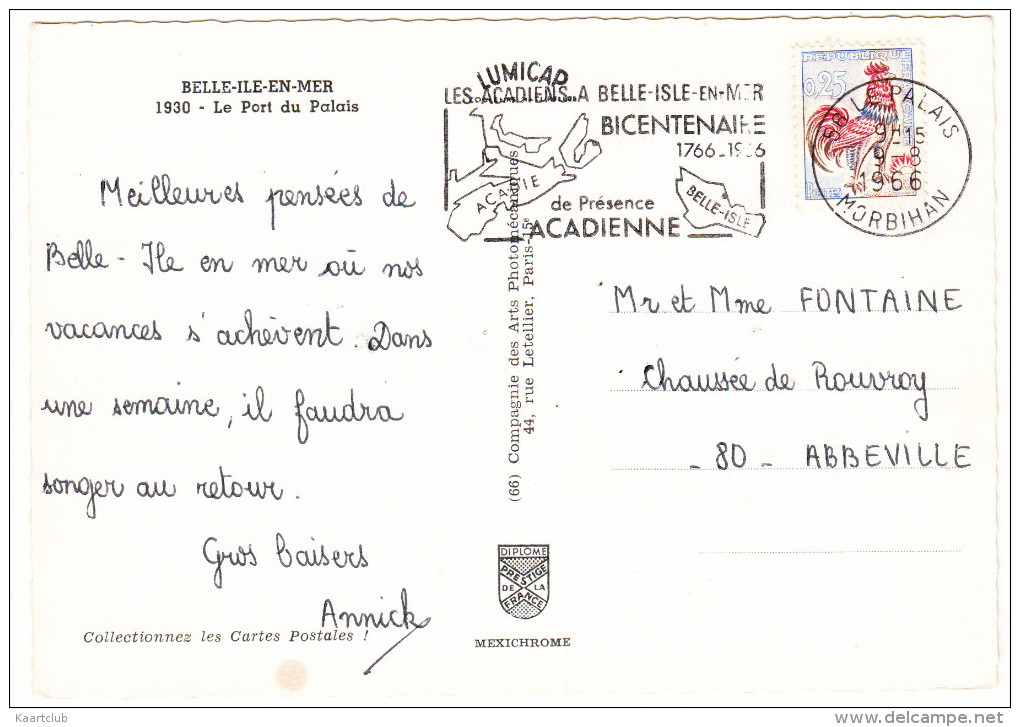 BELLE-ILE-EN-MER
1930 - Le Port du Palais
Meilleures pensées de
Belle-Ile en mer où nos
vacances s'achèvent. Dans
une semaine, il faudra
songer au retour.
Gros baisers
Annick
Collectionnez les Cartes Postales !
LUMICAP
LES ACADIENS A BELLE-ISLE-EN-MER
BICENTENAIRE
1766-1966
de Présence
ACADIENNE
ACADIE
BELLE-ISLE
REPUBLIQUE FRANCAISE
0,25
Postes
PALAIS
9H15
9-8
1966
MORBIHAN
(66) Compagnie des Arts Photomécaniques
44, rue Letellier, Paris-15e
DIPLOME
PRESTIGE
DE LA
FRANCE
MEXICHROME
Mr et Mme FONTAINE
Chaussée de Rouvroy
- 80 - ABBEVILLE
Kaartclub
www.delcampe.net